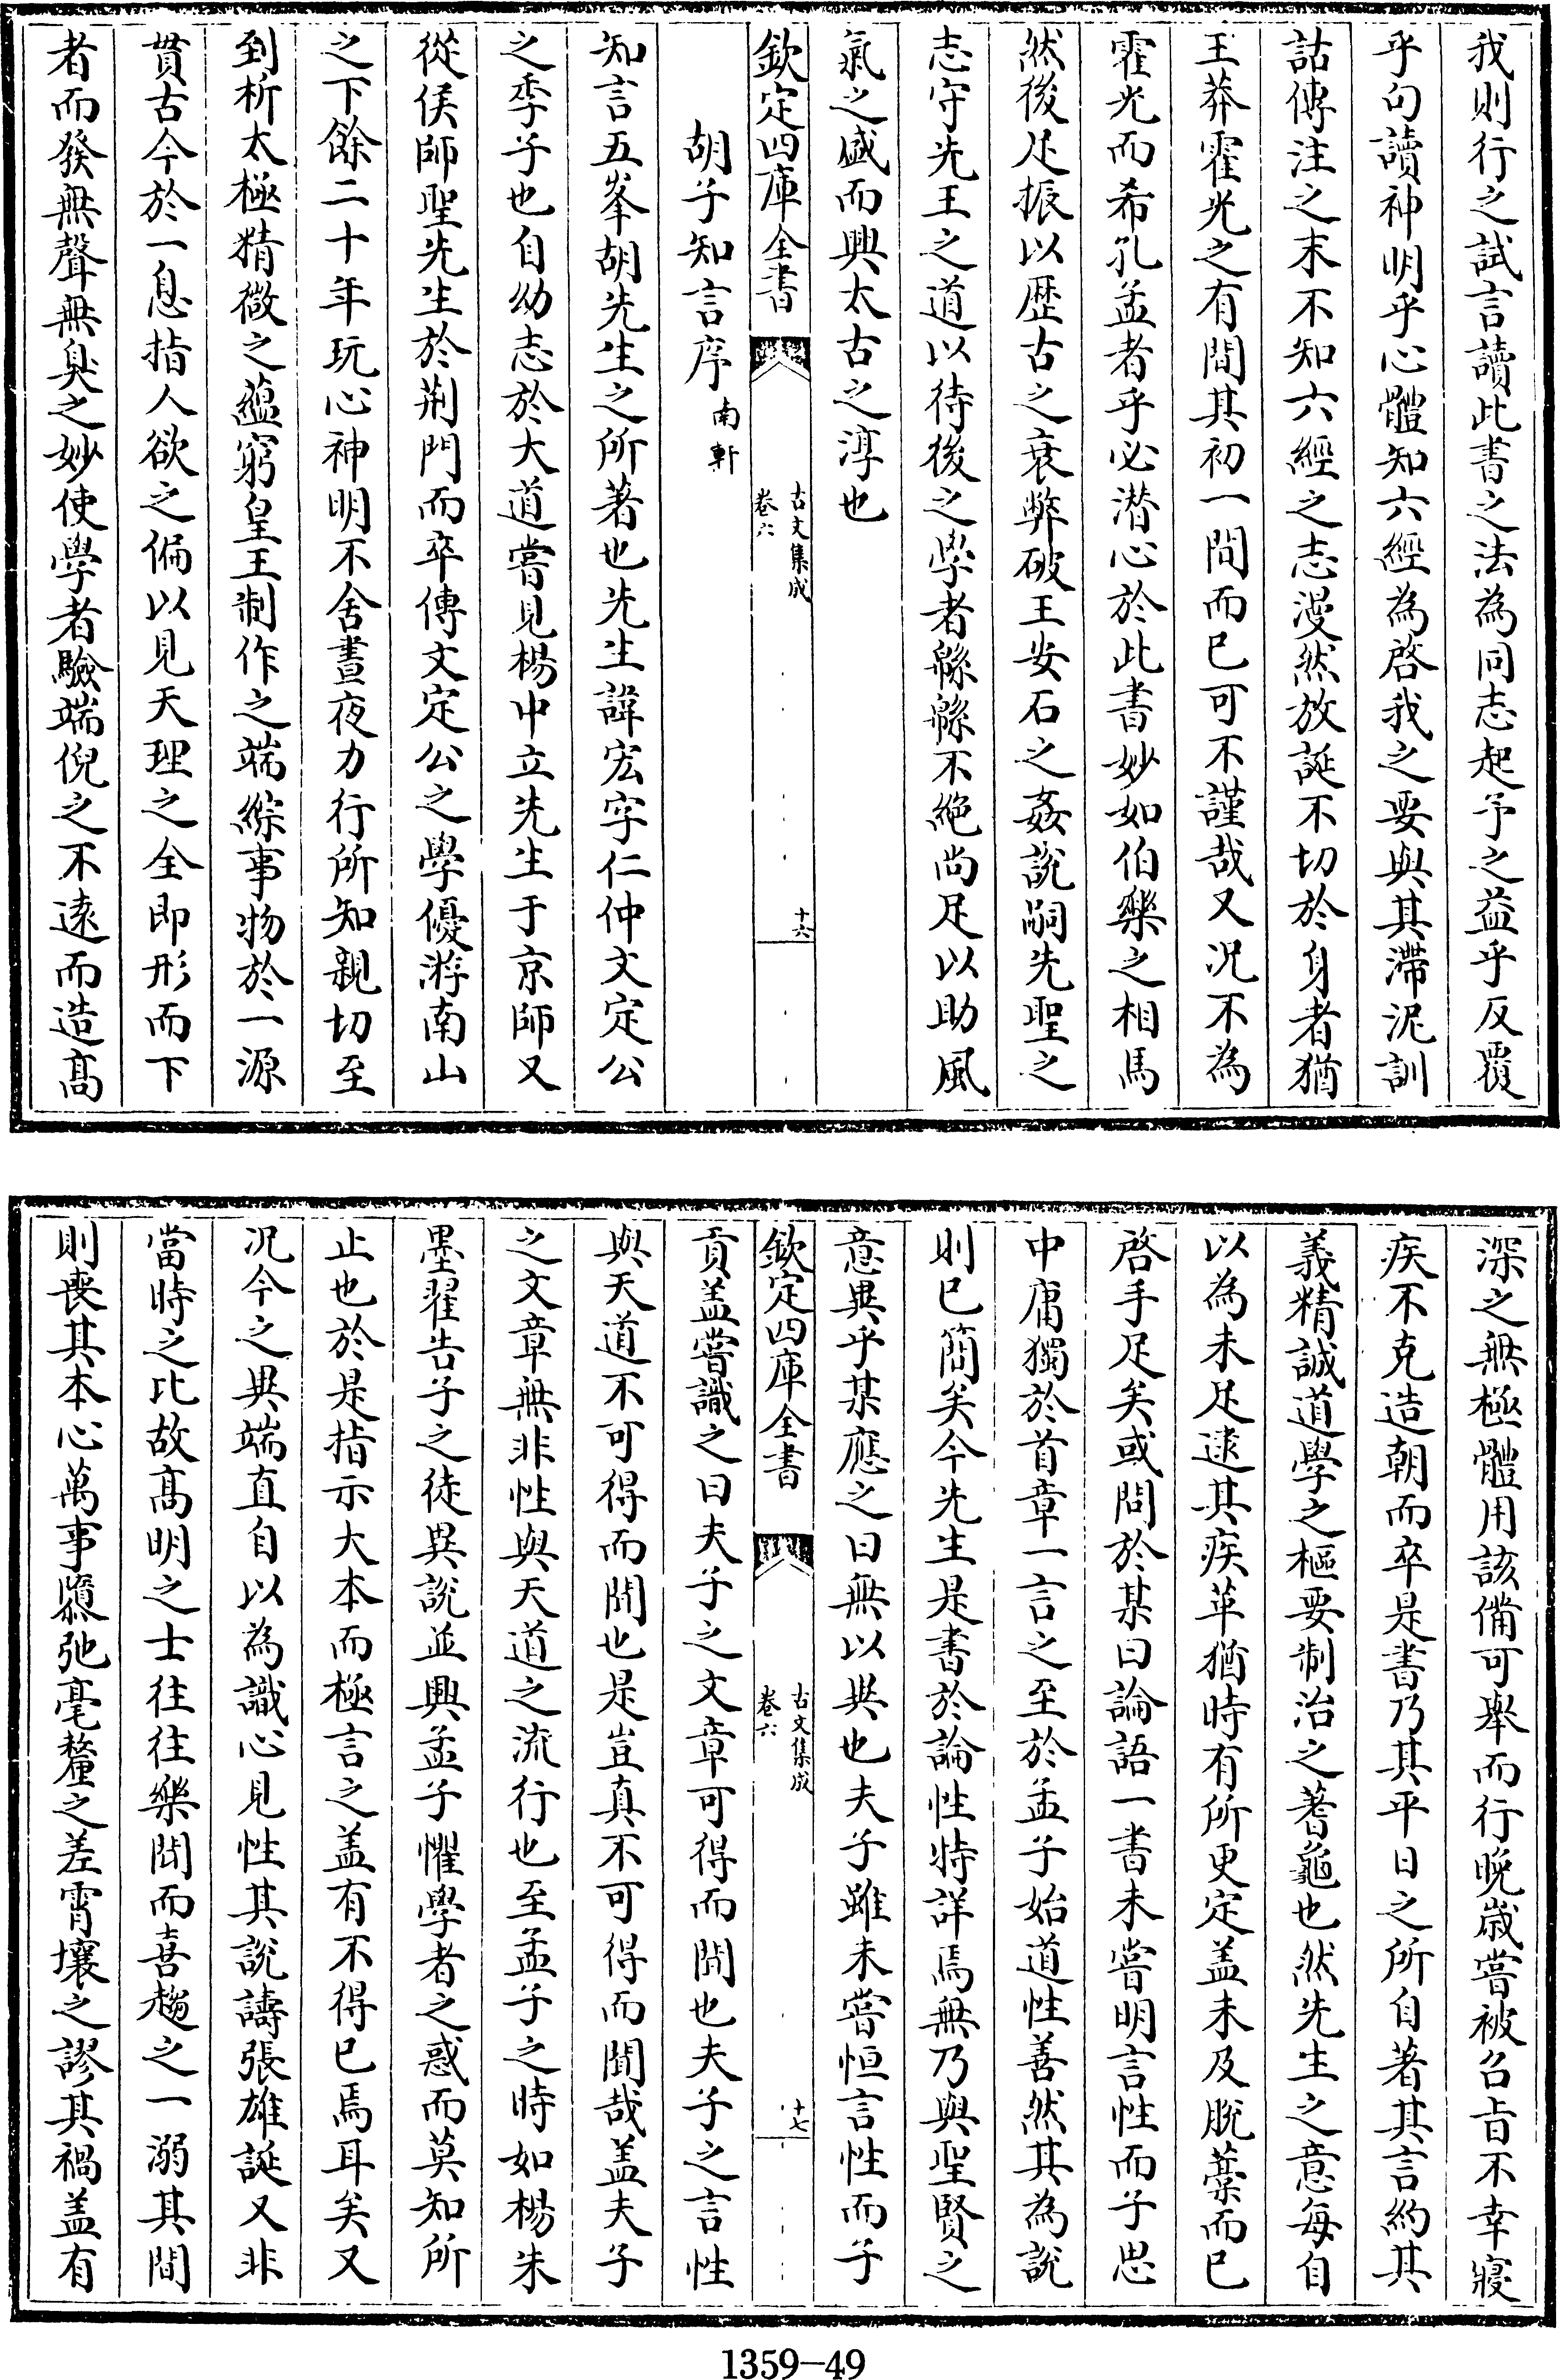 我則行之試言讀此書之法為同志起予之益乎反覆
乎句讀神明乎心體知六經為啓我之要與其滯泥訓
詁傳注之末不知六經之志漫然放誕不切於身者猶
王莽霍光之有間其初一間而已可不謹哉又况不為
霍光而希孔孟者乎必潜心於此書妙如伯樂之相馬
然後足振以歴古之衰弊破王安石之姦說嗣先聖之
志守先王之道以待後之學者緜緜不絶尚足以助風
氣之盛而興太古之淳也
欽定四庫全書
古文集成
卷六
十六
胡子知言序南軒
知言五峯胡先生之所著也先生諱宏字仁仲文定公
之季子也自幼志於大道嘗見楊中立先生于京師又
從侯師聖先生於荆門而卒傳文定公之學優游南山
之下餘二十年玩心神明不舍晝夜力行所知親切至
到析太極精微之蘊窮皇王制作之端綜事物於一源
貫古今於一息指人欲之偏以見天理之全即形而下
者而發無聲無臭之妙使學者驗端倪之不逺而造髙
深之無極體用該備可舉而行晚歳嘗被召㫖不幸寢
疾不克造朝而卒是書乃其平日之所自著其言約其
義精誠道學之樞要制治之蓍龜也然先生之意每自
以為未足逮其疾革猶時有所更定盖未及脫藁而已
啓手足矣或問於某曰論語一書未嘗明言性而子思
中庸獨於首章一言之至於孟子始道性善然其為說
則已簡矣今先生是書於論性特詳焉無乃與聖賢之
意異乎某應之曰無以異也夫子雖未嘗恒言性而子
欽定四庫全書
古文集成
卷六
十七
貢盖嘗識之曰夫子之文章可得而聞也夫子之言性
與天道不可得而聞也是豈真不可得而聞哉盖夫子
之文章無非性與天道之流行也至孟子之時如楊朱
墨翟告子之徒異說並興孟子懼學者之惑而莫知所
止也於是指示大本而極言之盖有不得已焉耳矣又
况今之異端直自以為識心見性其說譸張雄誕又非
當時之比故髙明之士往往樂聞而喜趨之一溺其間
則喪其本心萬事隳弛毫釐之差霄壤之謬其禍盖有
1359-49